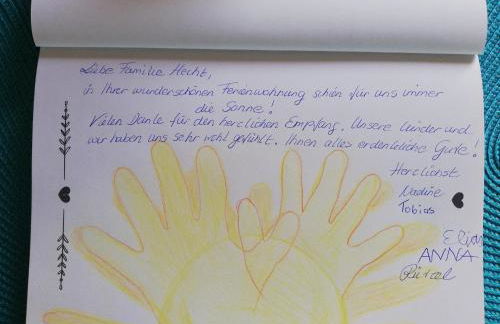 Liebe Familie Hecht,
in Ihrer wunderschönen Ferienwohnung schien für uns immer
die Sonne!
Vielen Danke für den herzlichen Empfang. Unsere Kinder und
wir haben uns sehr wohl gefühlt. Ihnen alles erdenkliche Gute!
Herzlichst
Nadine
Tobias
ANNA